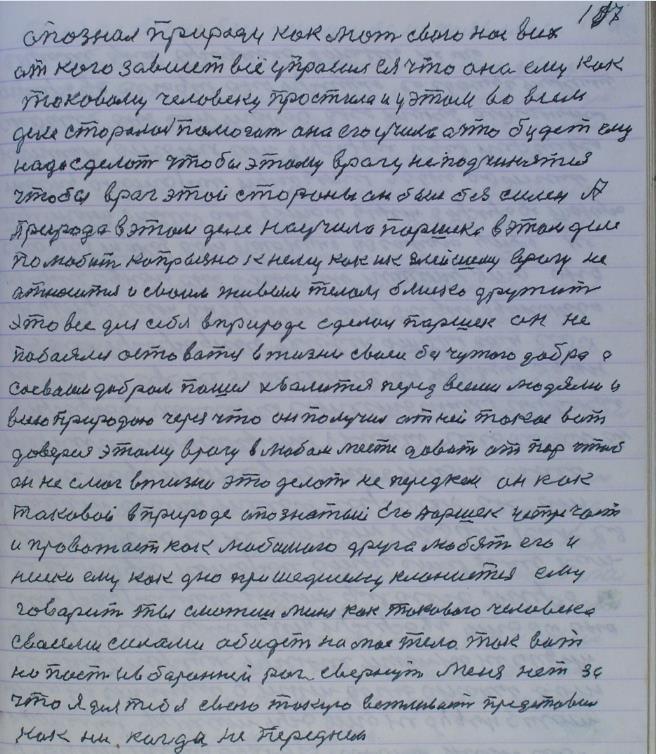 187
опознал природу как мать свою ное вик
от кого зависит всё управился что она ему как
таковому человеку простила и у этом во всем
деле сторалас помогат она его учила а что будет ему
надо сделат чтобы этому врагу не подчинятся
чтобы враг этой стороны он был без силен А
Природа в этом деле научила паршека в этом деле
помогат напрасно к нему как як злейшему врагу не
относится и своим живым телом близко дружит
это все для себя в природе сделал паршек он не
побаялся остоватся в жизни своей без чужого добра а
со своим добром пошел хвалится перед всеми людями и
всею природаю через что он получил от ней такое вот
доверия этому врагу в любом месте дават от пор чтоб
он не смог в жизни это делат не переднем он как
таковой в природе опознатый Его паршек устречает
и провожает как любимого друга любят его и
ниско ему как дно пришедшему кланяется ему
говарит ты сможиш миня как такового человека
своеми силами обидет на мое тело так вот
напаст и в баранний рог свернут Меня нет за
что я для тебя свою такую вежливаст представил
как ни когда не переднем